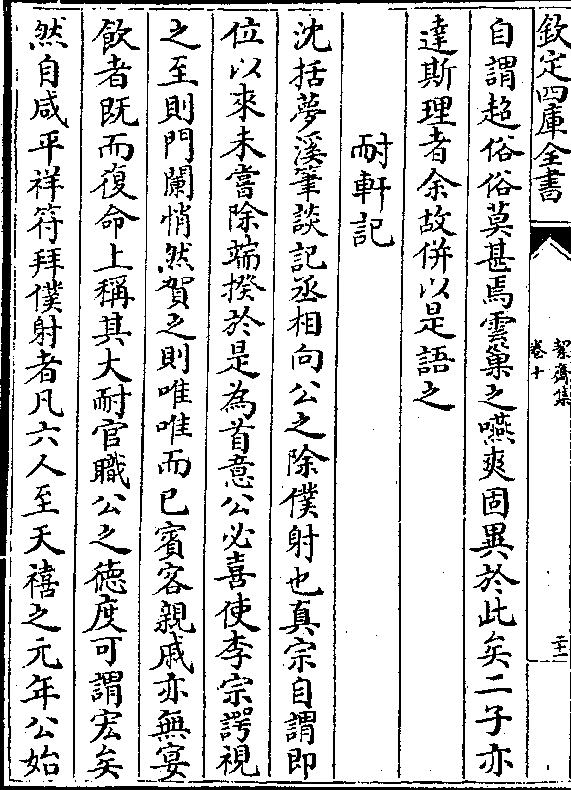 欽定四庫全書
絜齋集
卷十
二十一
自謂超俗俗莫甚焉雲巢之嚥爽固異於此矣二子亦
達斯理者余故併以是語之
耐軒記
沈括夢溪筆談記丞相向公之除僕射也真宗自謂即
位以來未嘗除端揆於是為首意公必喜使李宗諤視
之至則門闌悄然賀之則唯唯而已賓客親戚亦無宴
飲者既而復命上稱其大耐官職公之徳度可謂宏矣
然自咸平祥符拜僕射者凡六人至天禧之元年公始